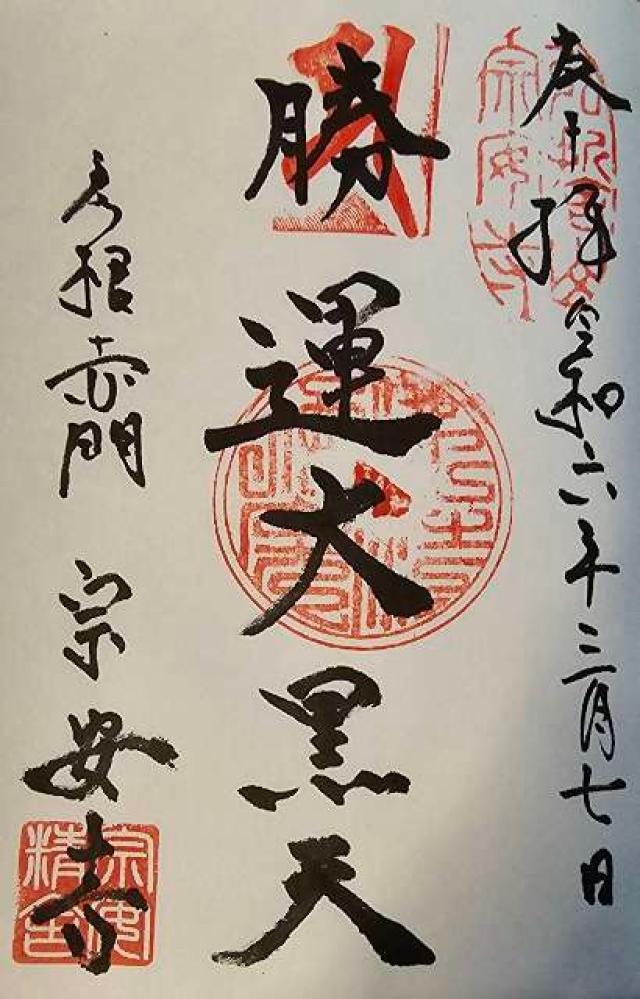 奉拝 令和六年三月七日
勝運大黒天
彦根赤門 宗安寺
宗安
精舎